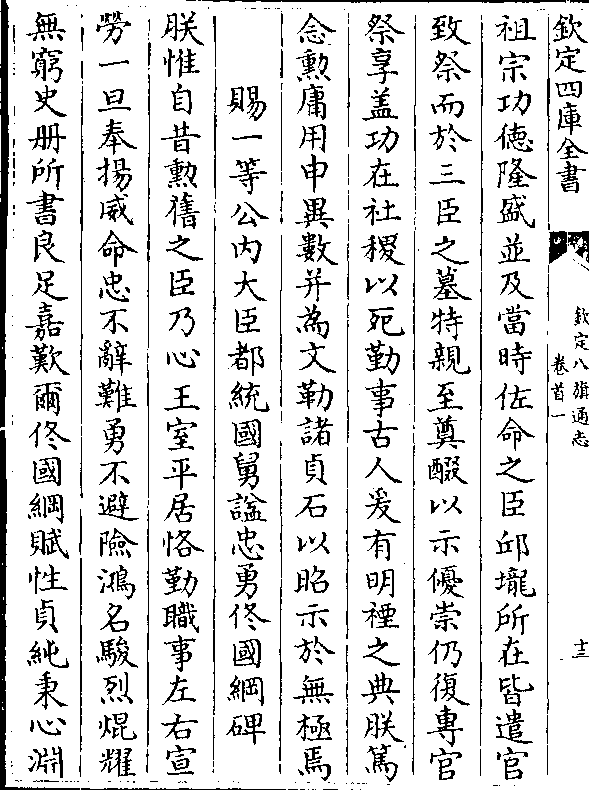 欽定四庫全書
欽定八旗通志
卷首一
十三
祖宗功徳隆盛並及當時佐命之臣邱壠所在皆遣官
致祭而於三臣之墓特親至奠醊以示優崇仍復専官
祭享盖功在社稷以死勤事古人爰有明禋之典朕篤
念勲庸用申異數并為文勒諸貞石以昭示於無極焉
賜一等公内大臣都統國舅諡忠勇佟國綱碑
朕惟自昔勲舊之臣乃心王室平居恪勤職事左右宣
勞一旦奉揚威命忠不辭難勇不避險鴻名駿烈焜耀
無窮史册所書良足嘉歎爾佟國綱賦性貞純秉心淵